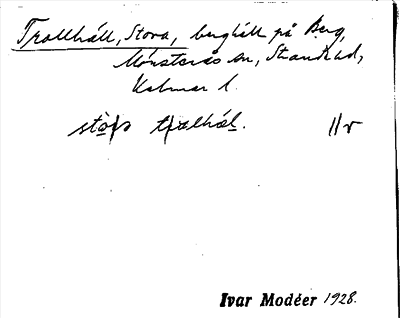 Trollhäll, Stora, berghäll på Berg,
Mönsterås sn, Stranda hd,
Kalmar l.
stòra tralhàl. llv
Ivar Modéer 1928.